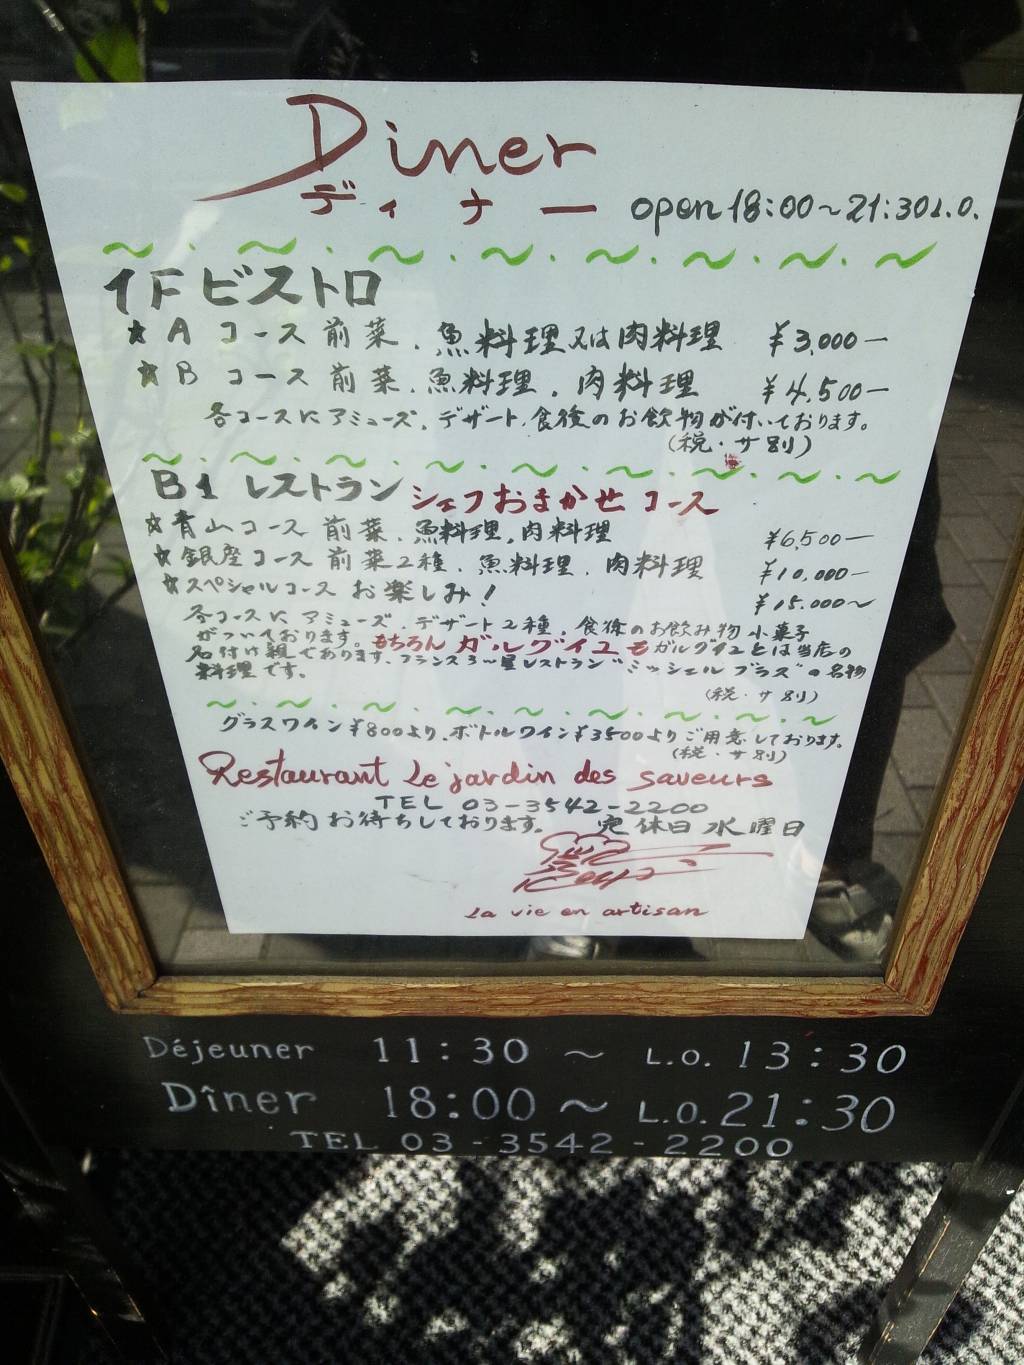 Diner
ディナー open 18:00~21:30 L.O.
1F ビストロ
★A コース 前菜、魚料理又は肉料理 ¥3,000ー
★B コース 前菜、魚料理、肉料理 ¥4,500ー
各コースにアミューズ、デザート、食後のお飲物が付いております。
(税・サ別)
B1 レストラン シェフおまかせコース
★青山コース 前菜、魚料理、肉料理 ¥6,500ー
★銀座コース 前菜2種、魚料理、肉料理 ¥10,000ー
★スペシャルコース お楽しみ! ¥15,000~
各コースに アミューズ、デザート2種、食後のお飲み物 小菓子
がついております。もちろん ガルグイユも ガルグイユとは当店の
名付け親であります、フランス3つ星レストラン"ミッシェル ブラス"の名物
料理です。
(税・サ別)
グラスワイン¥800より、ボトルワイン¥3500よりご用意しております。
(税・サ別)
Restaurant Le jardin des saveurs
TEL 03-3542-2200
ご予約お待ちしております。 定休日 水曜日
La vie en artisan
Déjeuner 11:30 ~ L.O. 13:30
Dîner 18:00 ~ L.O. 21:30
TEL 03-3542-2200